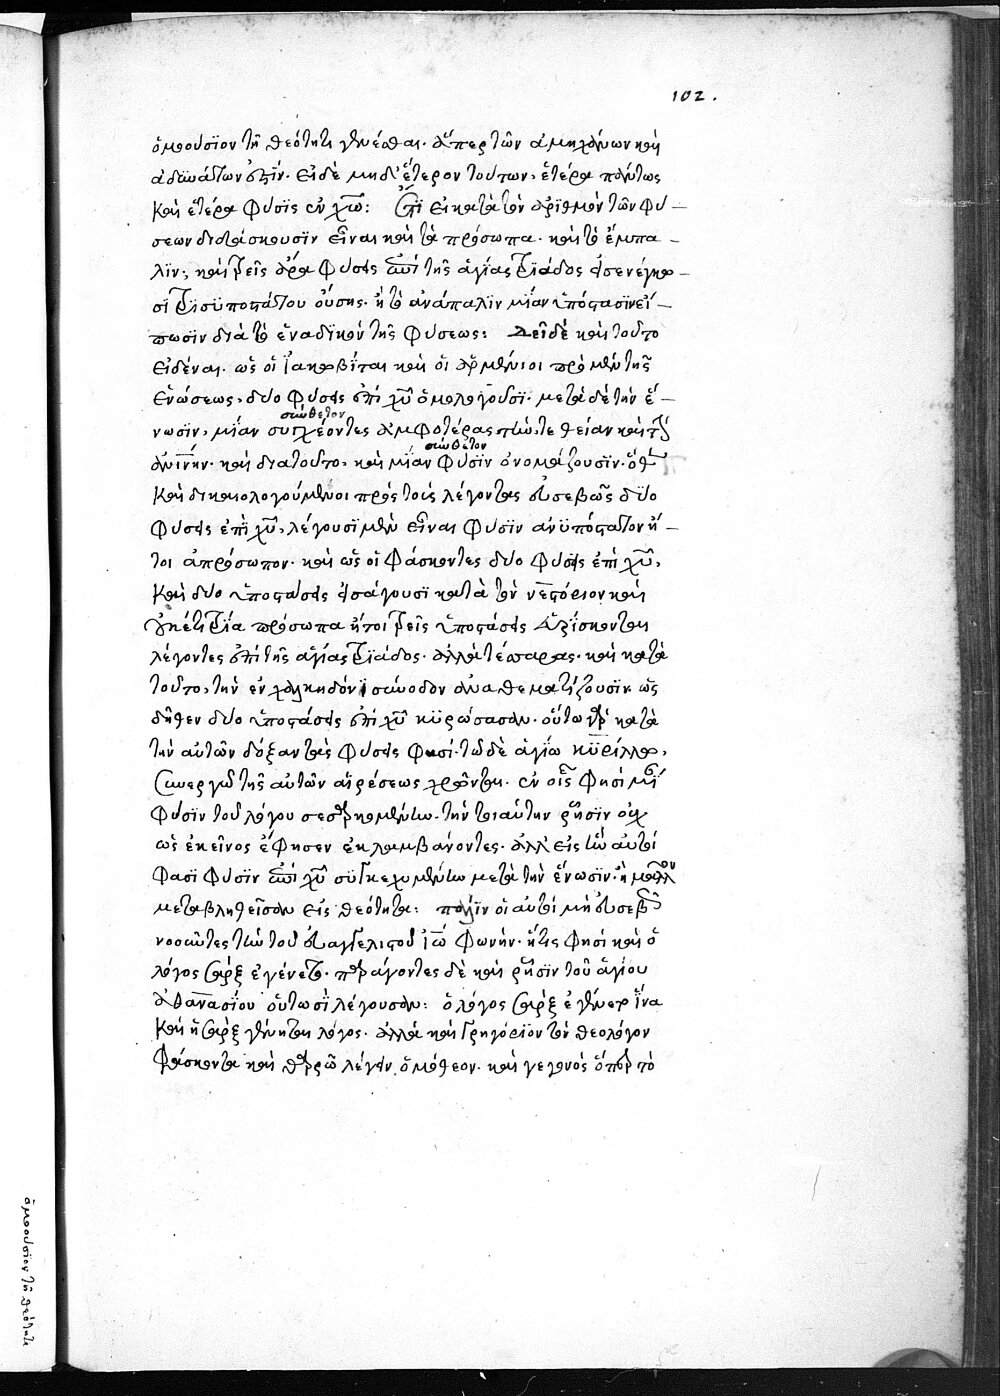 102.
ὁμοούσϊον τῆ θεότητι γενέσθαι· ἅπερ τῶν ἀμηχάνων καὶ
ἀδϋνάτων ἐστίν· εἰ δὲ μηδ' ἕτερον τούτων, ἑτέρα πάντως
καὶ ἑτέρα φύσϊς ἐν χω: Ἔτι εἰ κατὰ τὸν ἀρϊθμὸν τῶν φύ–
σεων διδάσκουσϊν εἶναι καὶ τὰ πρόσωπα· καὶ τὸ ἔμπα–
λϊν, καὶ τρεῖς ἄρα φύσεις ἐπὶ τῆς ἁγίας τρϊάδος εἰσενέγκω–
σι τρισϋποστάτου οὔσης· ἢ τὸ ἀνάπαλϊν μίαν ὑπόστασϊν εἴ–
πωσϊν διὰ τὸ ἑναδϊκὸν τῆς φύσεως: Δεῖ δὲ καὶ τοῦτο
εἰδέναι· ὡς οἱ ἰακωβῖται καὶ οἱ ἀρμένιοι πρὸ μὲν τῆς
ἑνώσεως, δύο φύσεις ἐπὶ χυ ὁμολογοῦσϊ· μετὰ δὲ τὴν ἕ–
σύνθετον
νωσϊν, μίαν συγχέοντες ἀμφοτέρας τήν τε θείαν καὶ τὴν
σύνθετον
ἀνινην· καὶ διατοῦτο, καὶ μίαν φύσϊν ὀνομάζουσϊν· ὅθεν
καὶ δικαιολογούμενοι πρὸς τοὺς λέγοντας εὐσεβῶς δύο
φύσεις ἐπὶ χυ, λέγουσϊ μὲν εἶναι φύσϊν ἀνϋπόστατον ἤ–
τοι ἀπρόσωπον· καὶ ὡς οἱ φάσκοντες δύο φύσεις ἐπὶ χυ,
καὶ δύο ὑποστάσεις εἰσάγουσϊ κατὰ τὸν νεστόριον καὶ
οὐκέτι τρία πρόσωπα ἤτοι τρεῖς ὑποστάσεις εὑρίσκονται
λέγοντες ἐπὶ τῆς ἁγίας τρϊάδος· ἀλλὰ τέσσαρας· καὶ κατὰ
τοῦτο, τὴν ἐν χαλκηδόνι σύνοδον ἀναθεματίζουσϊν ὡς
δῆθεν δύο ὑποστάσεις ἐπὶ χυ κϋρώσασαν· οὕτω γὰρ κατὰ
τὴν αὐτῶν δόξαν τὰς φύσεις φασί· τῶ δὲ ἁγίω κϋρίλλω,
συνεργῶ τῆς αὐτῶν αἱρέσεως χρῶνται· ἐν οἷς φησὶ μίαν
φύσϊν τοῦ λόγου σεσαρκωμένην· τὴν τοιαύτην ῥῆσϊν οὐχ
ὡς ἐκεῖνος ἔφησεν ἐκλαμβάνοντες· ἀλλ' εἰς ἣν αὐτοί
φασι φύσϊν ἐπὶ χυ συγκεχυμένην μετὰ τὴν ἕνωσϊν· ἢ μᾶλλον
μεταβληθεῖσαν εἰς θεότητα: πάλϊν οἱ αὐτοὶ μὴ εὐσεβῶς
νοοῦντες τὴν τοῦ εὐαγγελιστοῦ ἰω φωνήν· ἥτις φησὶ καὶ ὁ
λόγος σὰρξ ἐγένετο· παράγοντες δὲ καὶ ῥῆσϊν τοῦ ἁγίου
ἀθανασίου οὕτωσὶ λέγουσαν: ὁ λόγος σὰρξ ἐγένετο ἵνα
καὶ ἡ σὰρξ γένηται λόγος· ἀλλὰ καὶ γρηγόρϊον τὸν θεολόγον
φάσκοντα καὶ θαρρῶ λέγειν ὁμόθεον· καὶ γεγονὸς ὅπερ τὸ
ὁμοούσϊον τῆ θεότητι